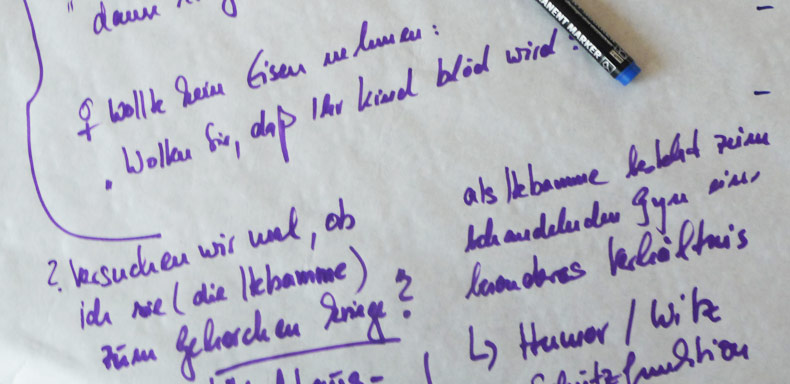 " dann
♀ wollte kein Eisen nehmen:
„ Wollen Sie, daß Ihr Kind blöd wird?
? Versuchen wir mal, ob
ich sie (die Hebamme)
zum Gehorchen kriege?
PERMANENT MARKER
als Hebamme besteht zum
behandelnden Gyn ein
besonderes Verhältnis
↳ Humor / Witz
Schutzfunktion